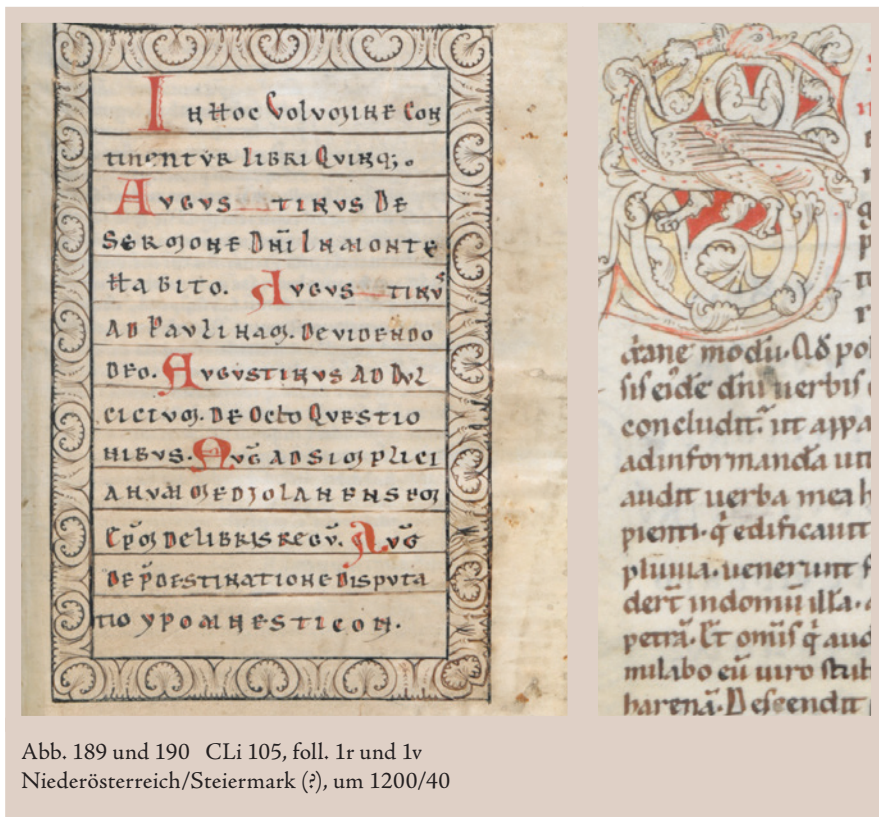 IN HOC VOLVMINE CON
TINENTVR LIBRI QVINQ;.
AVGVSTINVS DE
SERMONE DN̄I IN MONTE
HABITO. AVGVSTINVS
AD PAVLINAM. DE VIDENDO
DEO. AVGVSTINVS AD DVL
CICIVM. DE OCTO QVESTIO
NIBVS. AVḠ AD SIMPLICI
ANVM MEDIOLANENSEM
EP̄M DE LIBRIS REGV̄. AVḠ
DE P̄DESTINATIONE DISPVTA
TIO YPOMNESTICON.
modū. Qd̄ pol
sis eidē dn̄i uerbis
concludit. ut appa
ad informandā uit
audit uerba mea h
pienti. q̄ edificauit
pluuia. uenerunt f
der̄t in domū illā.
petrā. Et omīs q̄ aud
milabo eū uiro stul
harenā. Descendit
Abb. 189 und 190 CLi 105, foll. 1r und 1v
Niederösterreich/Steiermark (?), um 1200/40